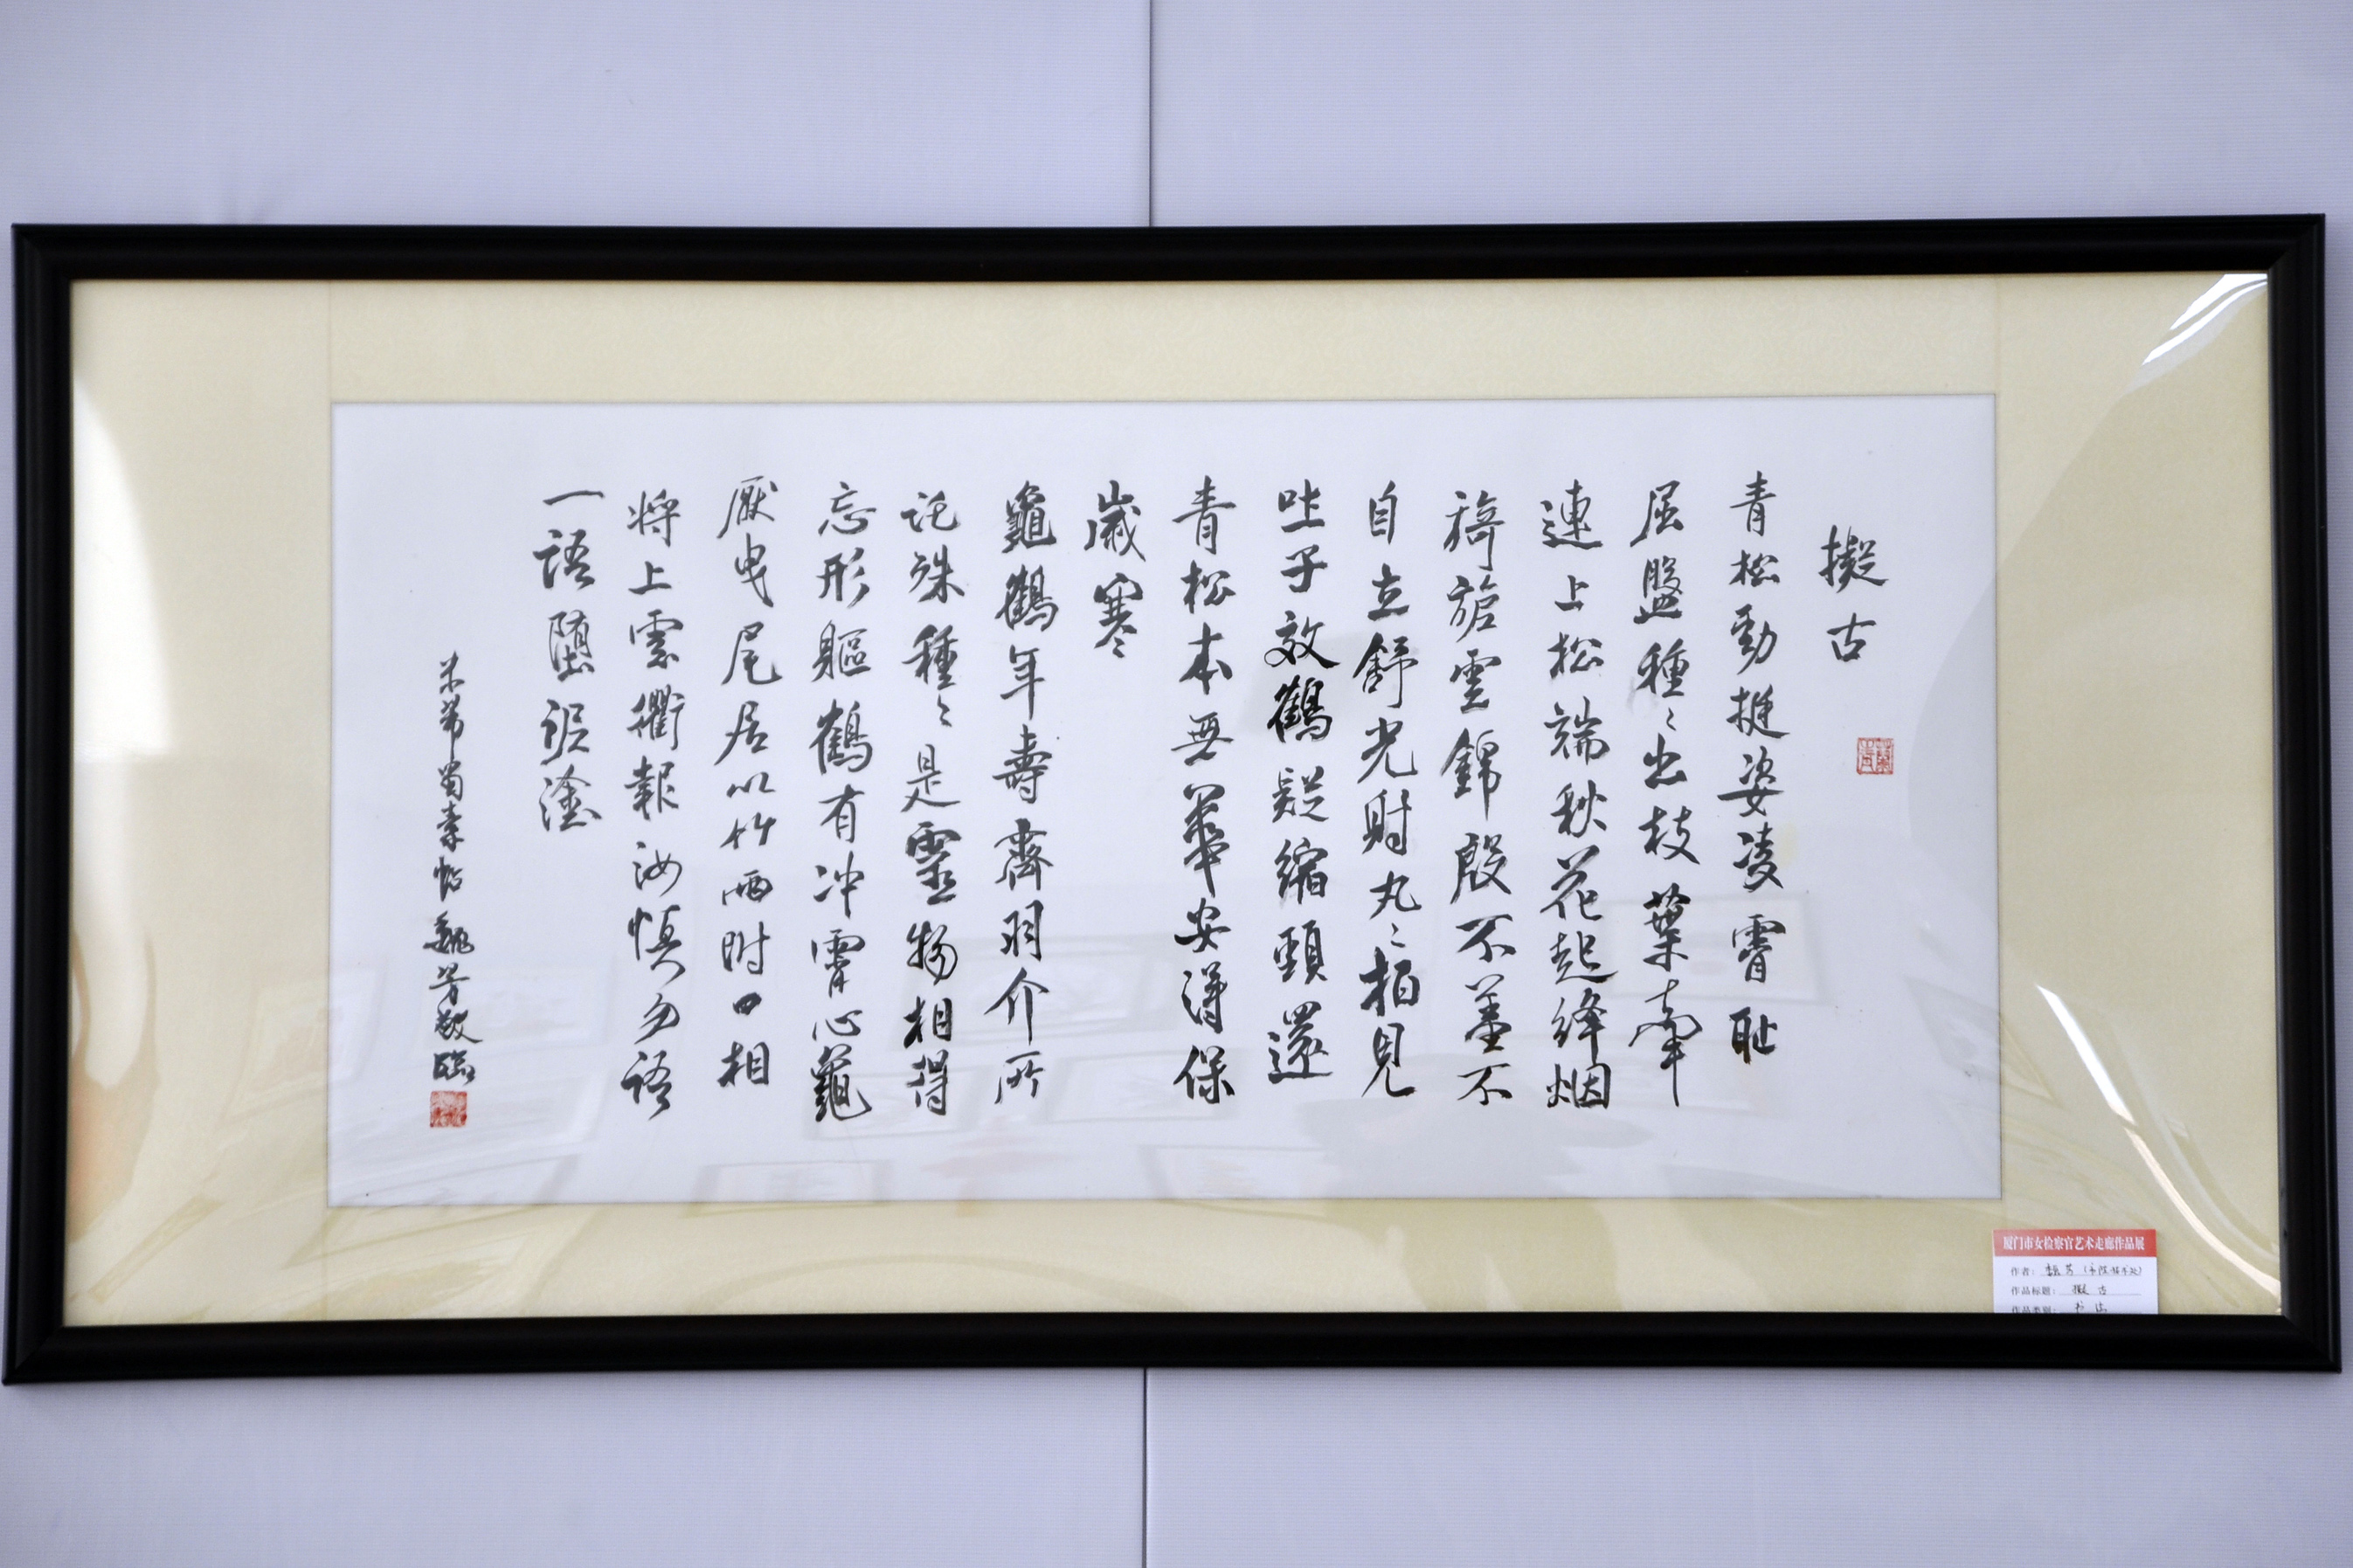 擬古
青松勁挺姿凌霄耻
屈盤種〻出枝葉牽
連上松端秋花起絳烟
旖旎雲錦殷不羞不
自立舒光射丸〻柏見
吐子效鶴疑縮頸還
青松本無華安得保
歲寒
龜鶴年壽齊羽介所
託殊種〻是靈物相得
忘形軀鶴有冲霄心龜
厭曳尾居以竹兩附口相
將上雲衢報汝慎勿語
一語墮泥塗
米芾蜀素帖魏芳敬臨
厦门市女检察官艺术走廊作品展
作者：魏芳
作品标题：擬古
作品类别：书法